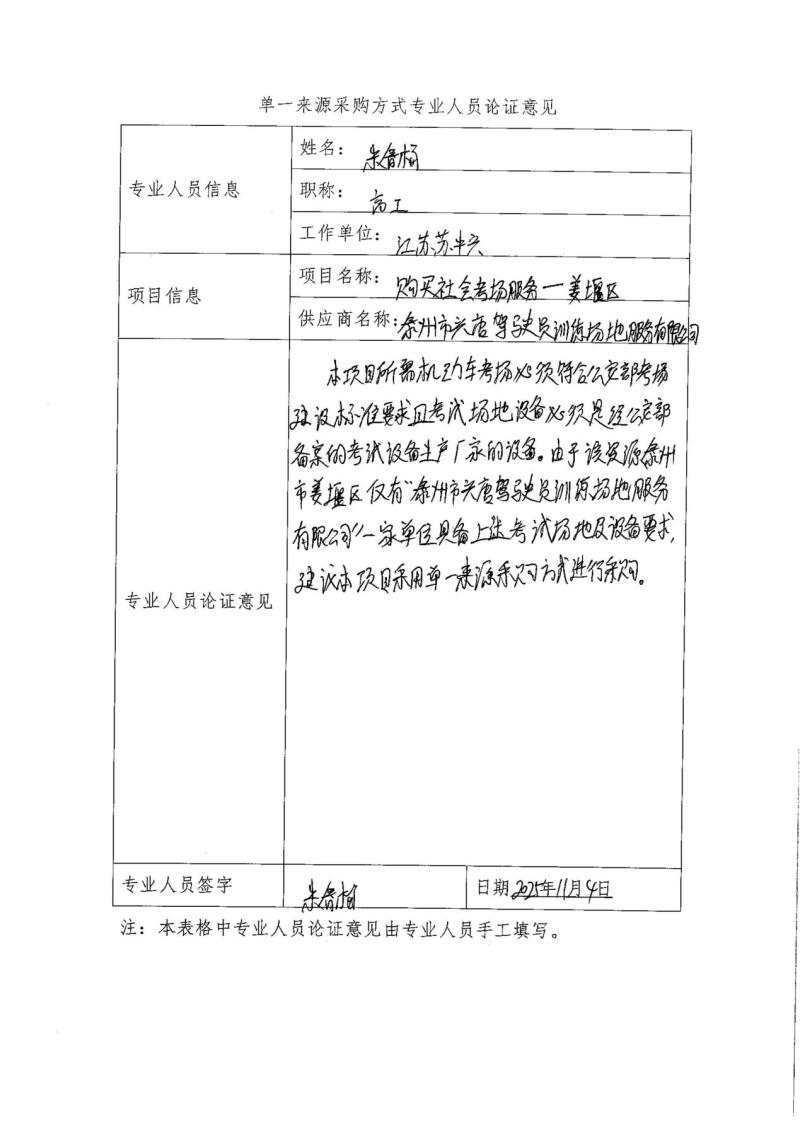 单一来源采购方式专业人员论证意见
专业人员信息
姓名：朱春梅
职称：高工
工作单位：江苏苏中兴
项目信息
项目名称：购买社会考场服务—姜堰区
供应商名称：泰州市兴唐驾驶员训练场地服务有限公司
专业人员论证意见
本项目所需机动车考场必须符合公安部考场
建设标准要求且考试场地设备必须是经公安部
备案的考试设备生产厂家的设备。由于该资源泰州
市姜堰区仅有“泰州市兴唐驾驶员训练场地服务
有限公司”一家单位具备上述考试场地及设备要求，
建议本项目采用单一来源采购方式进行采购。
专业人员签字
日期 2025年11月4日
注：本表格中专业人员论证意见由专业人员手工填写。